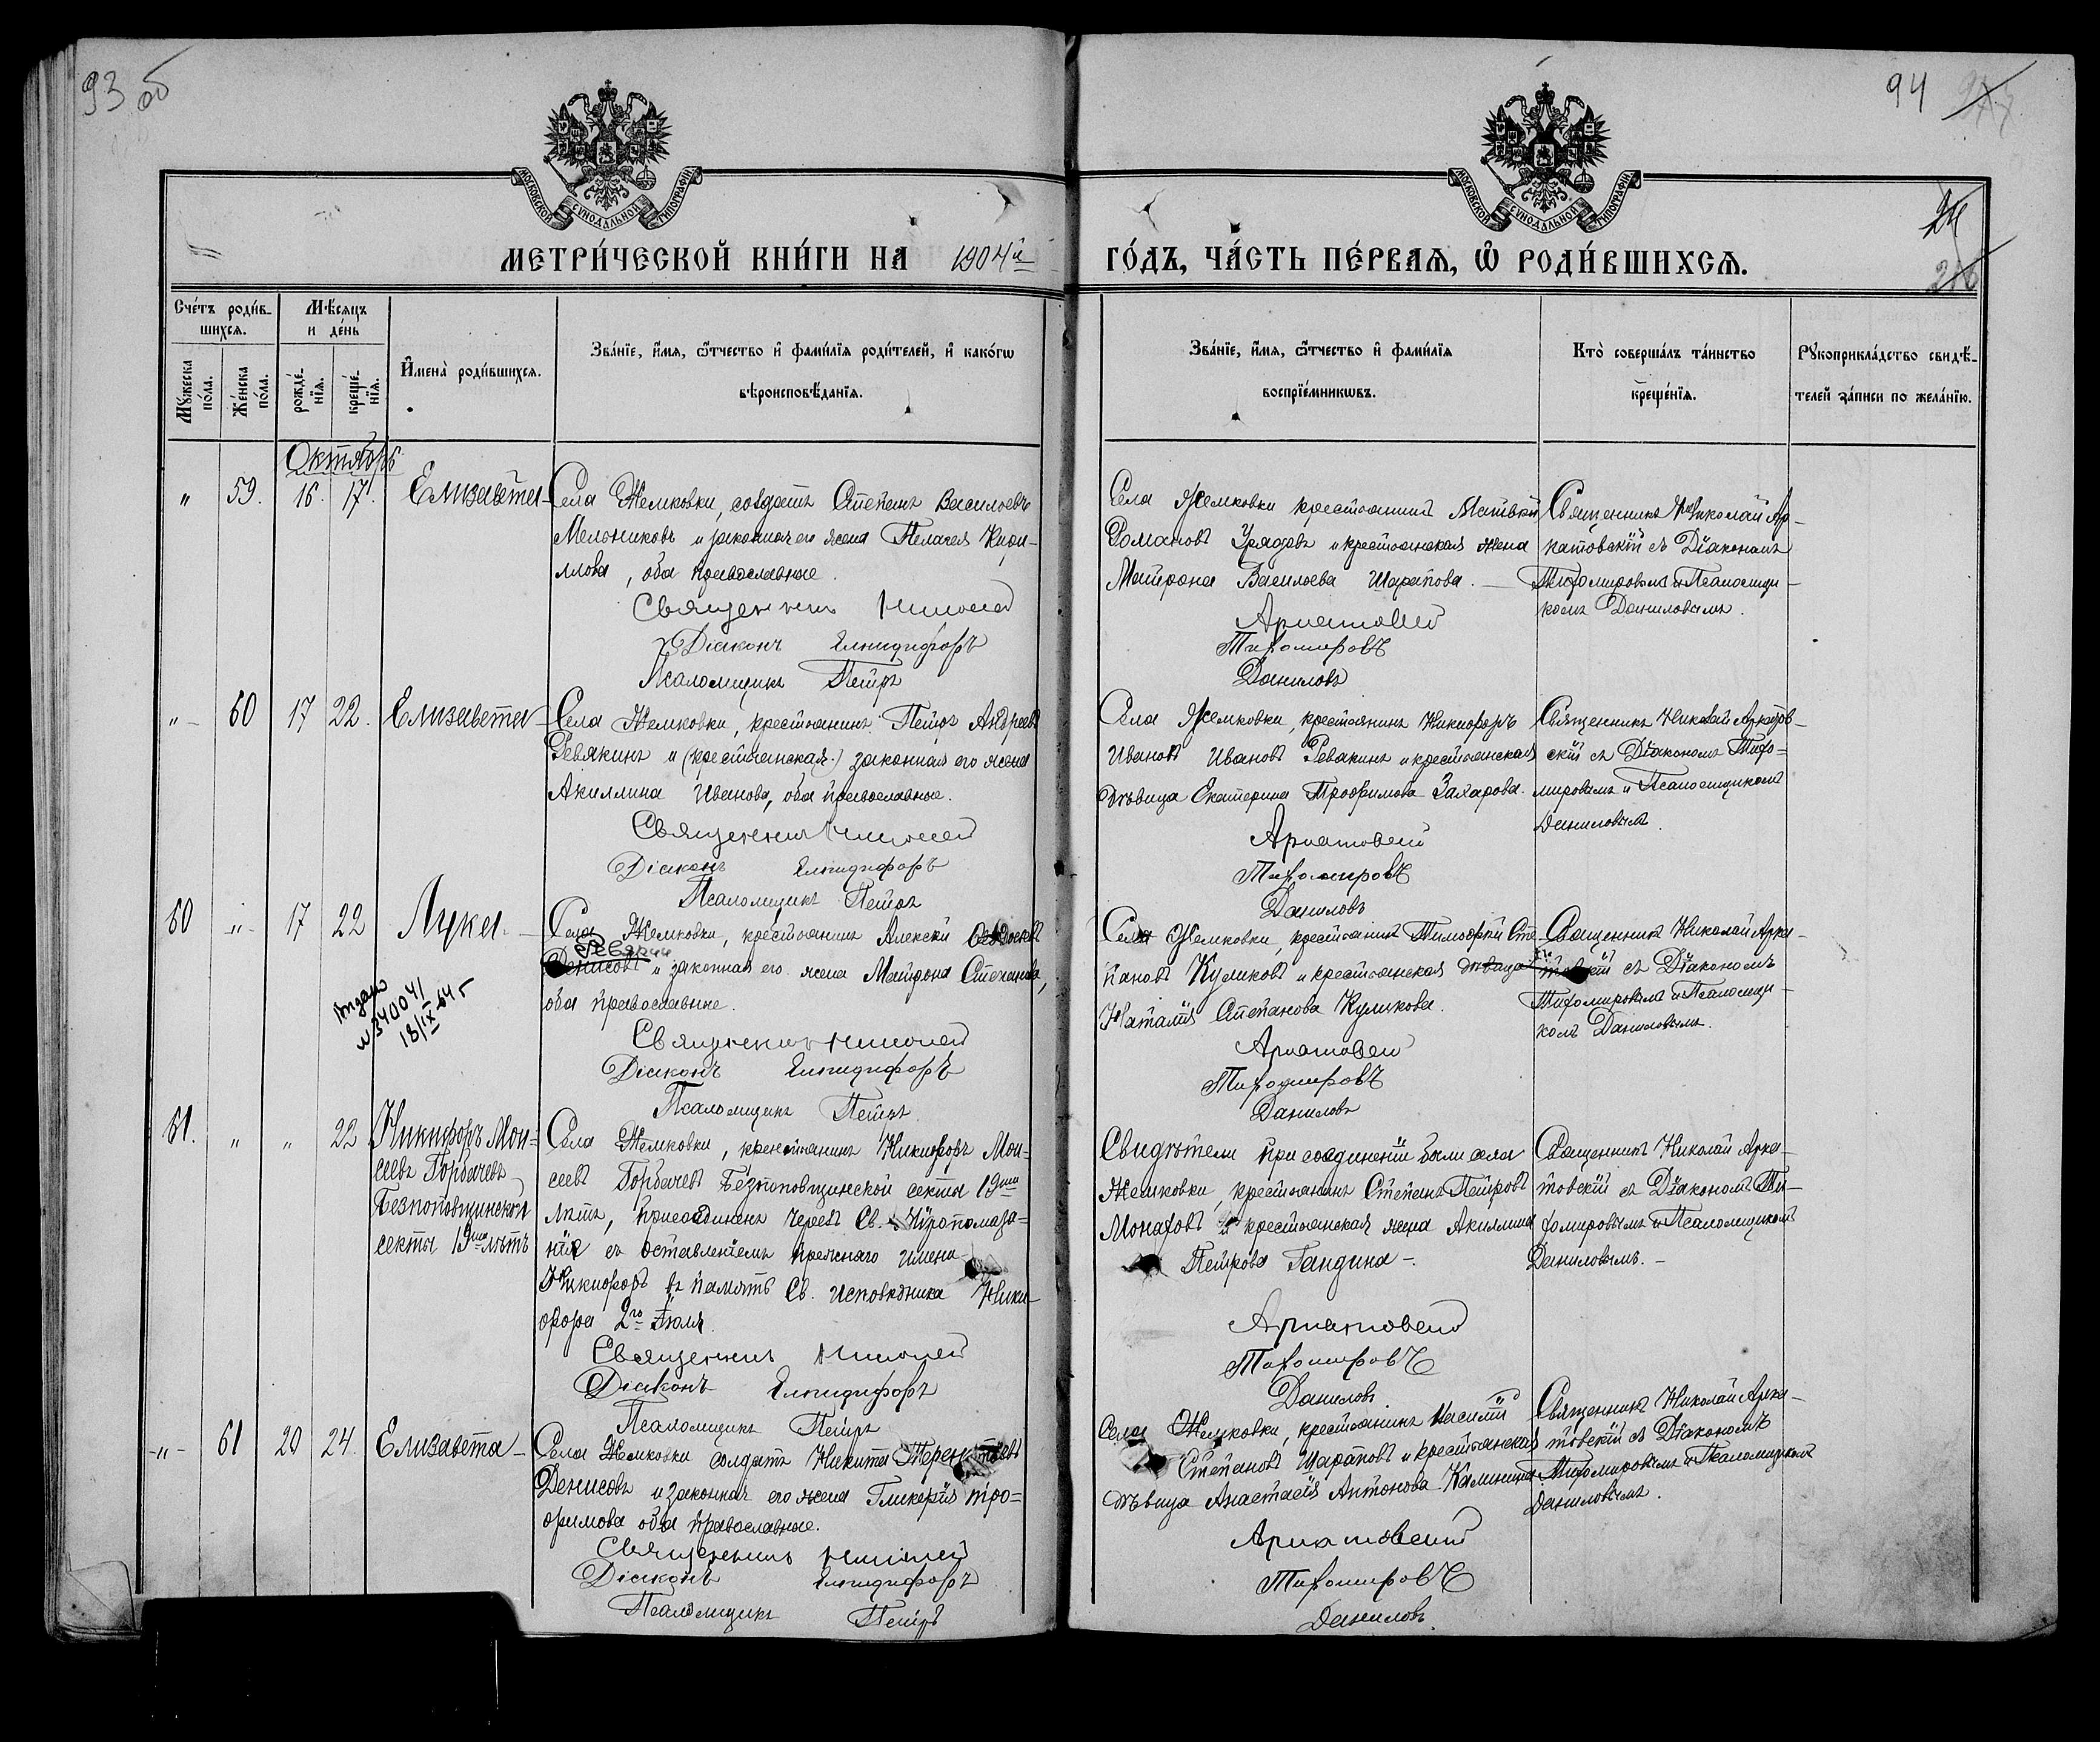 93 об
94
МОСКОВСКОЙ СУНОДАЛЬНОЙ ТИПОГРАФІИ
МОСКОВСКОЙ СУНОДАЛЬНОЙ ТИПОГРАФІИ
МЕТРИ́ЧЕСКОЙ КНИ́ГИ НА 1904й
ГО́ДЪ, ЧА́СТЬ ПЕ́РВАѦ, Ѡ РОДИ́ВШИХСѦ.
Сче́тъ роди́в-
шихсѧ.
Мѣ́сѧцъ
и де́нь
Мꙋ́жеска по́ла.
Же́нска по́ла.
рожде́-
нїѧ.
креще́-
нїѧ.
И҆мена̀ роди́вшихсѧ.
Зва́нїе, и҆́мѧ, ѻ҆́тчество и҆ фами́лїѧ роди́телей, и҆ како́гѡ
вѣроисповѣ́данїѧ.
Зва́нїе, и҆́мѧ, ѻ҆́тчество и҆ фами́лїѧ
воспрїе́мникѡвъ.
Кто̀ соверша́лъ та́инство
креще́нїѧ.
Рꙋкоприкла́дство свидѣ́-
телей за́писи по жела́нїю.
Октябрь
" 59. 16. 17. Елизавета
Села Жемковки, солдатъ Степанъ Васильевъ
Мельниковъ и законная его жена Пелагея
оба православные.
Священникъ Николай
Діаконъ Елпидифоръ
Псаломщикъ Петръ
Села Жемковки крестьянинъ Матвѣй
Романовъ Урядовъ и крестьянская жена
Матрона Васильева Шарапова.
Аркатовскій
Тихомировъ
Даниловъ
Священникъ Николай Ар-
катовскій съ Діакономъ
Тихомировымъ и Псаломщи-
комъ Даниловымъ.
" 60 17 22. Елизавета
Села Жемковки, крестьянинъ Петръ Андреевъ
Ревякинъ и (крестьянская) законная его жена
Акилина Иванова, оба православные.
Священникъ Николай
Діаконъ Елпидифоръ
Псаломщикъ Петръ
Села Жемковки, крестьянинъ Никифоръ
Ивановъ Ивановъ Ревакинъ и крестьянская
дѣвица Екатерина Трофимова Захарова.
Аркатовскій
Тихомировъ
Даниловъ
Священникъ Николай Аркатов-
скій съ Діакономъ Тихо-
мировымъ и Псаломщикомъ
Даниловымъ.
60 " 17 22 Лука
Села Жемковки, крестьянинъ Алексѣй
Денисовъ и законная его жена Матрона Степанова,
оба православные.
Священникъ Николай
Діаконъ Елпидифоръ
Псаломщикъ Петръ
Выдано
№340041
18/IX-64 г
Села Жемковки, крестьянинъ Тимофей Сте-
пановъ Куликовъ и крестьянская дѣвица
Наталія Степанова Куликова.
Аркатовскій
Тихомировъ
Даниловъ
Священникъ Николай Арка-
товскій съ Діакономъ
Тихомировымъ и Псаломщи-
комъ Даниловымъ.
61. " " 22 Никифоръ Мои-
сеевъ Горбачевъ
Безпоповщинской
секты 19ти лѣтъ
Села Жемковки, крестьянинъ Никифоръ Мои-
сеевъ Горбачевъ Безпоповщинской секты 19ти
лѣтъ, присоединенъ чрезъ Св. Мѵропомаза-
ніе съ оставленіемъ прежняго имени
Никифоръ въ память Св. исповѣдника Ники-
фора 2го Іюня.
Священникъ Николай
Діаконъ Елпидифоръ
Псаломщикъ Петръ
Свидѣтели при соединеніи были села
Жемковки, крестьянинъ Степанъ Петровъ
Монаховъ и крестьянская жена Акилина
Петрова Гандина -.
Аркатовскій
Тихомировъ
Даниловъ
Священникъ Николай Арка-
товскій съ Діакономъ Ти-
хомировымъ и Псаломщикомъ
Даниловымъ. -
-"- 61 20 24. Елизавета
Села Жемковки солдатъ Никита Терентьевъ
Денисовъ и законная его жена Гликерія Тро-
фимова оба православные.
Священникъ Николай
Діаконъ Елпидифоръ
Псаломщикъ Петръ
Села Жемковки, крестьянинъ Василій
Степановъ Шараповъ и крестьянская
дѣвица Анастасія Антонова Калинина
Аркатовскій
Тихомировъ
Даниловъ.
Священникъ Николай Арка-
товскій съ Діакономъ
Тихомировымъ и Псаломщикомъ
Даниловымъ.